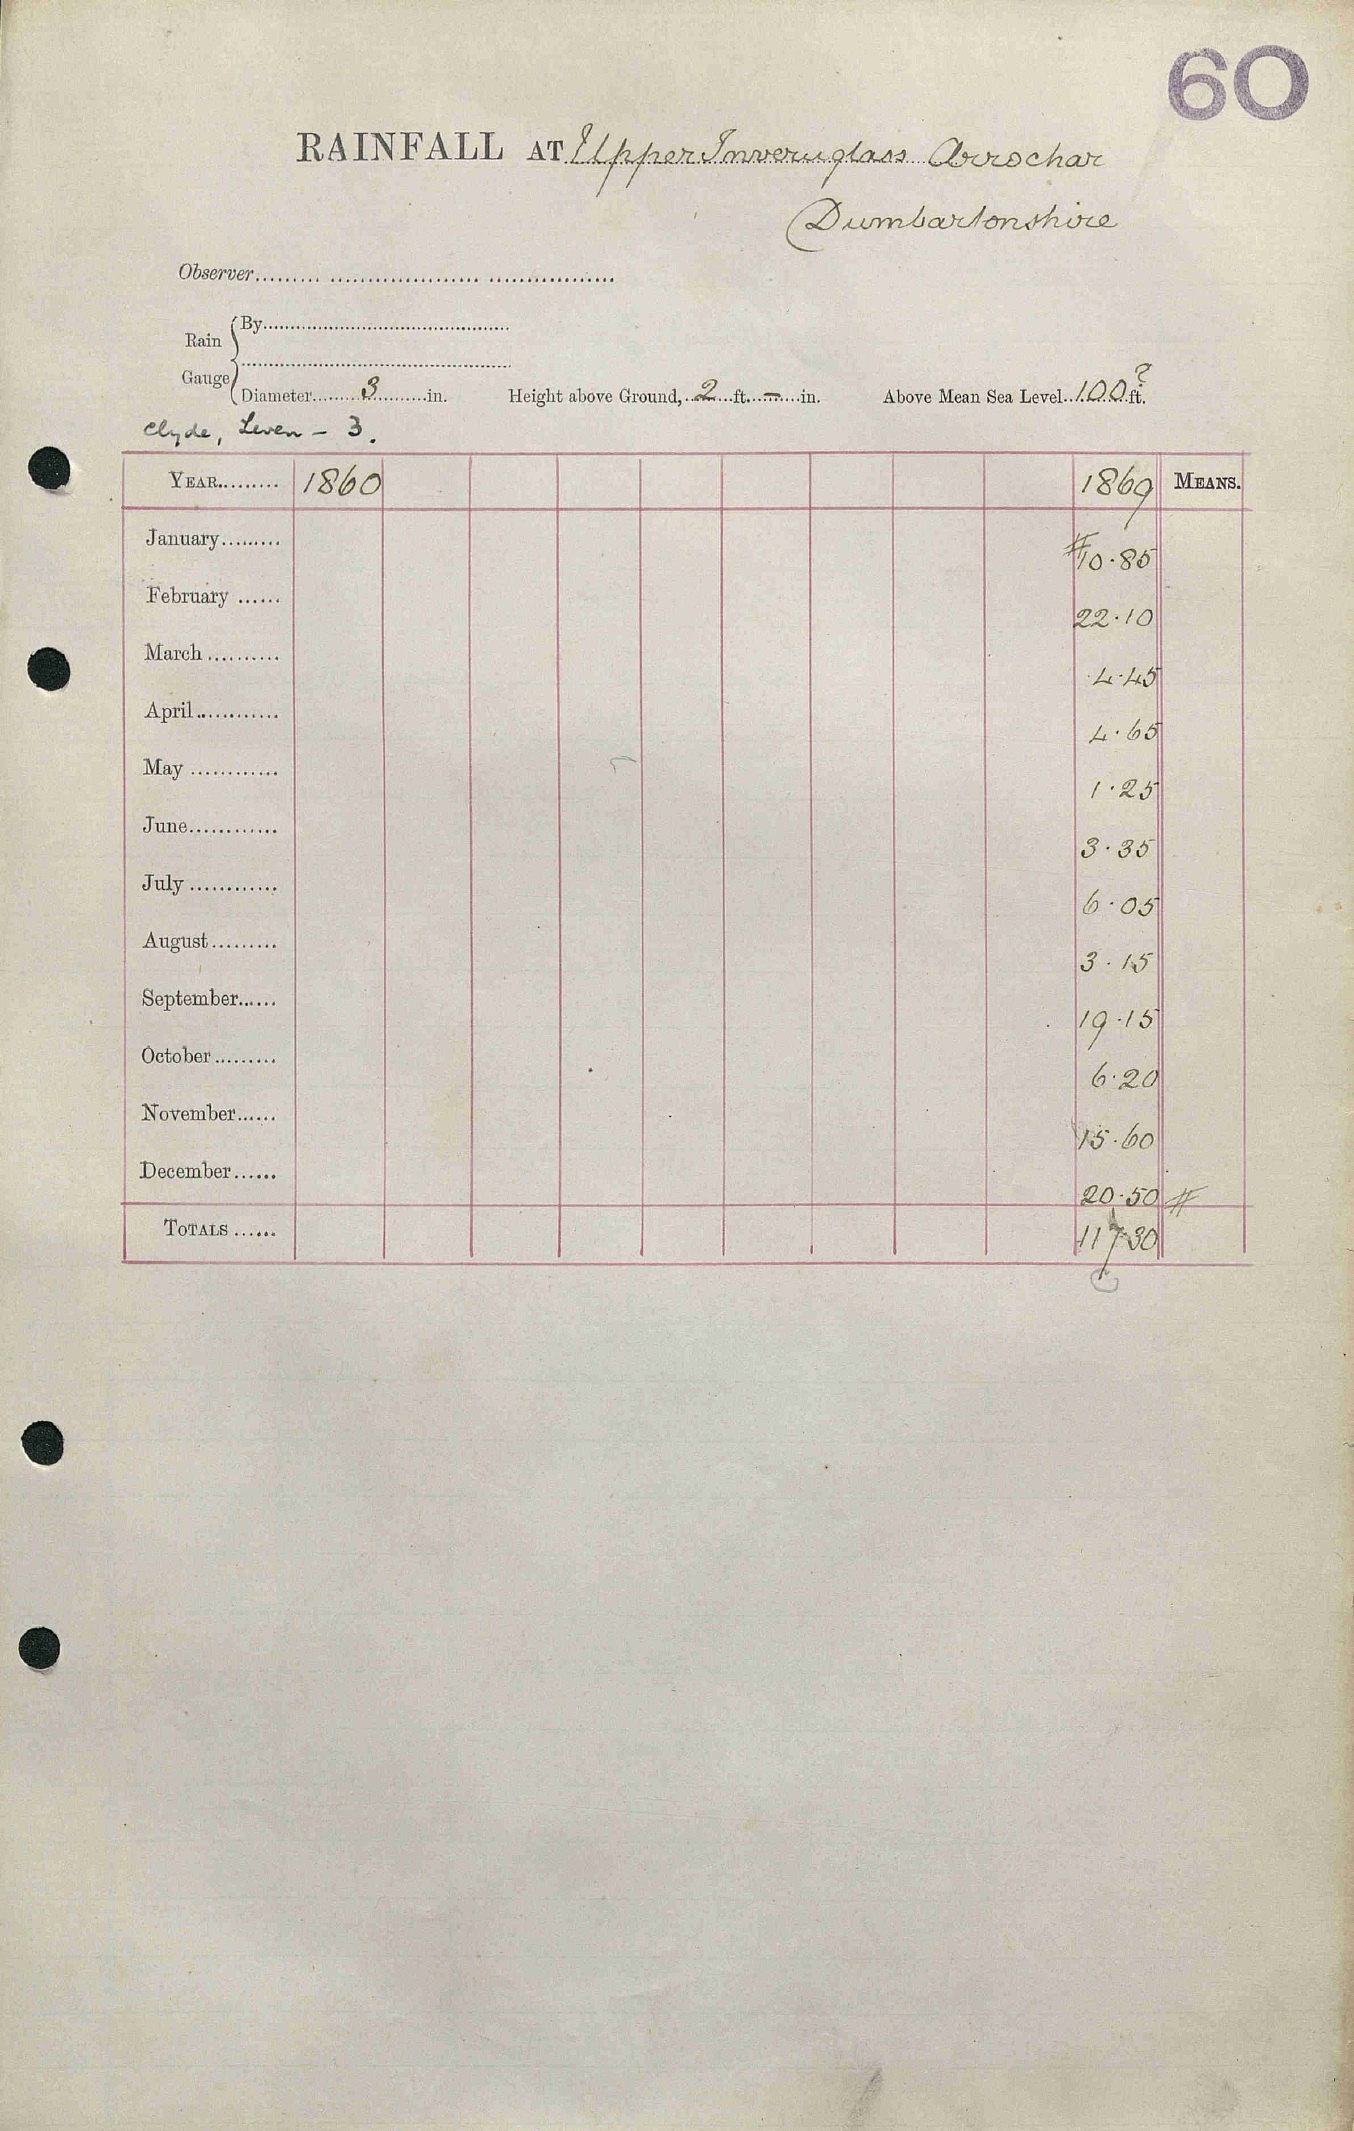 60
RAINFALL AT Upper Inveruglass Arrochar
Dumbartonshire
Observer
Rain Gauge { By
Diameter 3 in. Height above Ground, 2 ft. – in. Above Mean Sea Level 100? ft.
Clyde, Leven – 3.
YEAR 1860 1869 MEANS.
January # 10.85
February 22.10
March 4.45
April 4.65
May 1.25
June 3.35
July 6.05
August 3.15
September 19.15
October 6.20
November 15.60
December 20.50 #
TOTALS 117.30